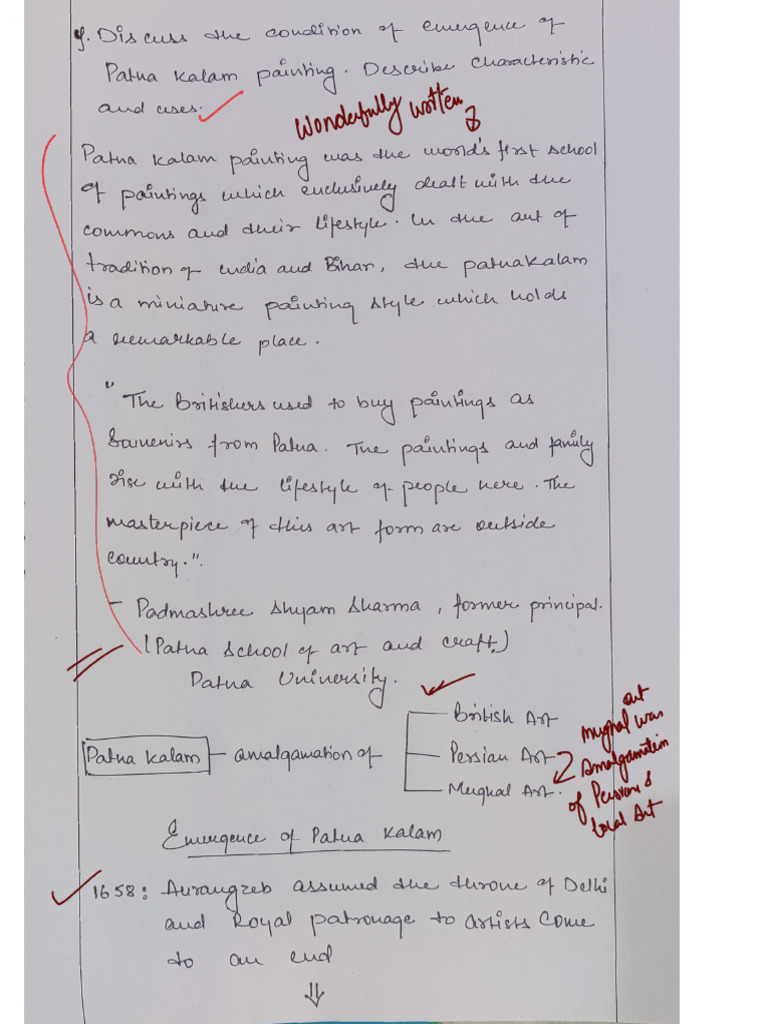 Q. Discuss the condition of emergence of
Patna Kalam painting. Describe characteristic
and uses.
Wonderfully written
Patna Kalam painting was the world's first school
of paintings which exclusively dealt with the
commons and their lifestyle. In the art of
tradition of India and Bihar, the patnakalam
is a miniature painting style which holds
a remarkable place.
"The Britishers used to buy paintings as
Souvenirs from Patna. The paintings and family
rise with the lifestyle of people here. The
masterpiece of this art form are outside
country."
- Padmashree Shyam Sharma, former principal.
(Patna School of art and craft.)
Patna University.
Patna Kalam - amalgamation of
British Art
Persian Art
Mughal Art.
art
Mughal was
Amalgamation
of Persian &
local Art
Emergence of Patna Kalam
1658: Aurangzeb assumed the throne of Delhi
and Royal patronage to artists come
to an end
⇓